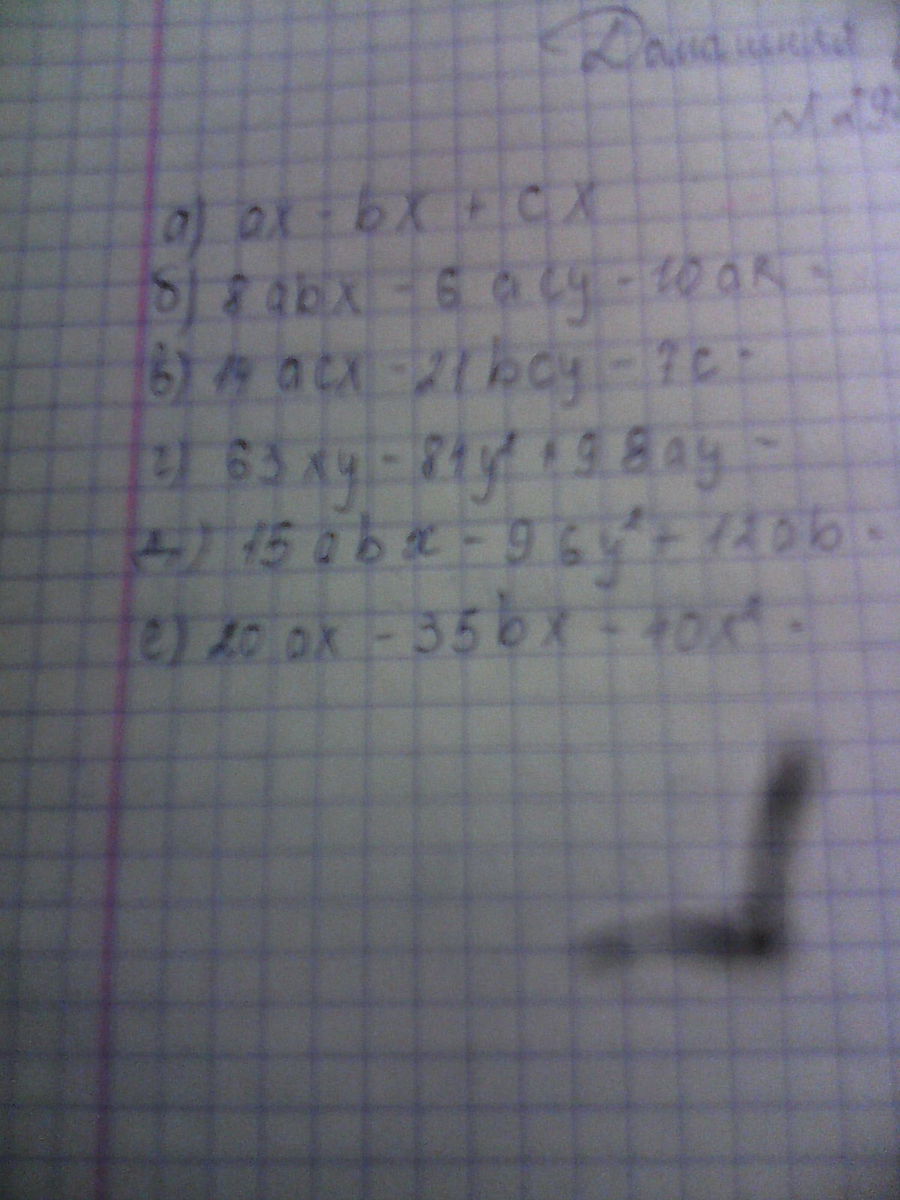 Домашняя
№ 29
а) ax - bx + cx
б) 8abx - 6acy - 10ak =
в) 14acx - 21bcy - 7c =
г) 63xy - 84y² + 98ay =
д) 15abx - 96y² + 12ab =
е) 20ax - 35bx - 40x² =